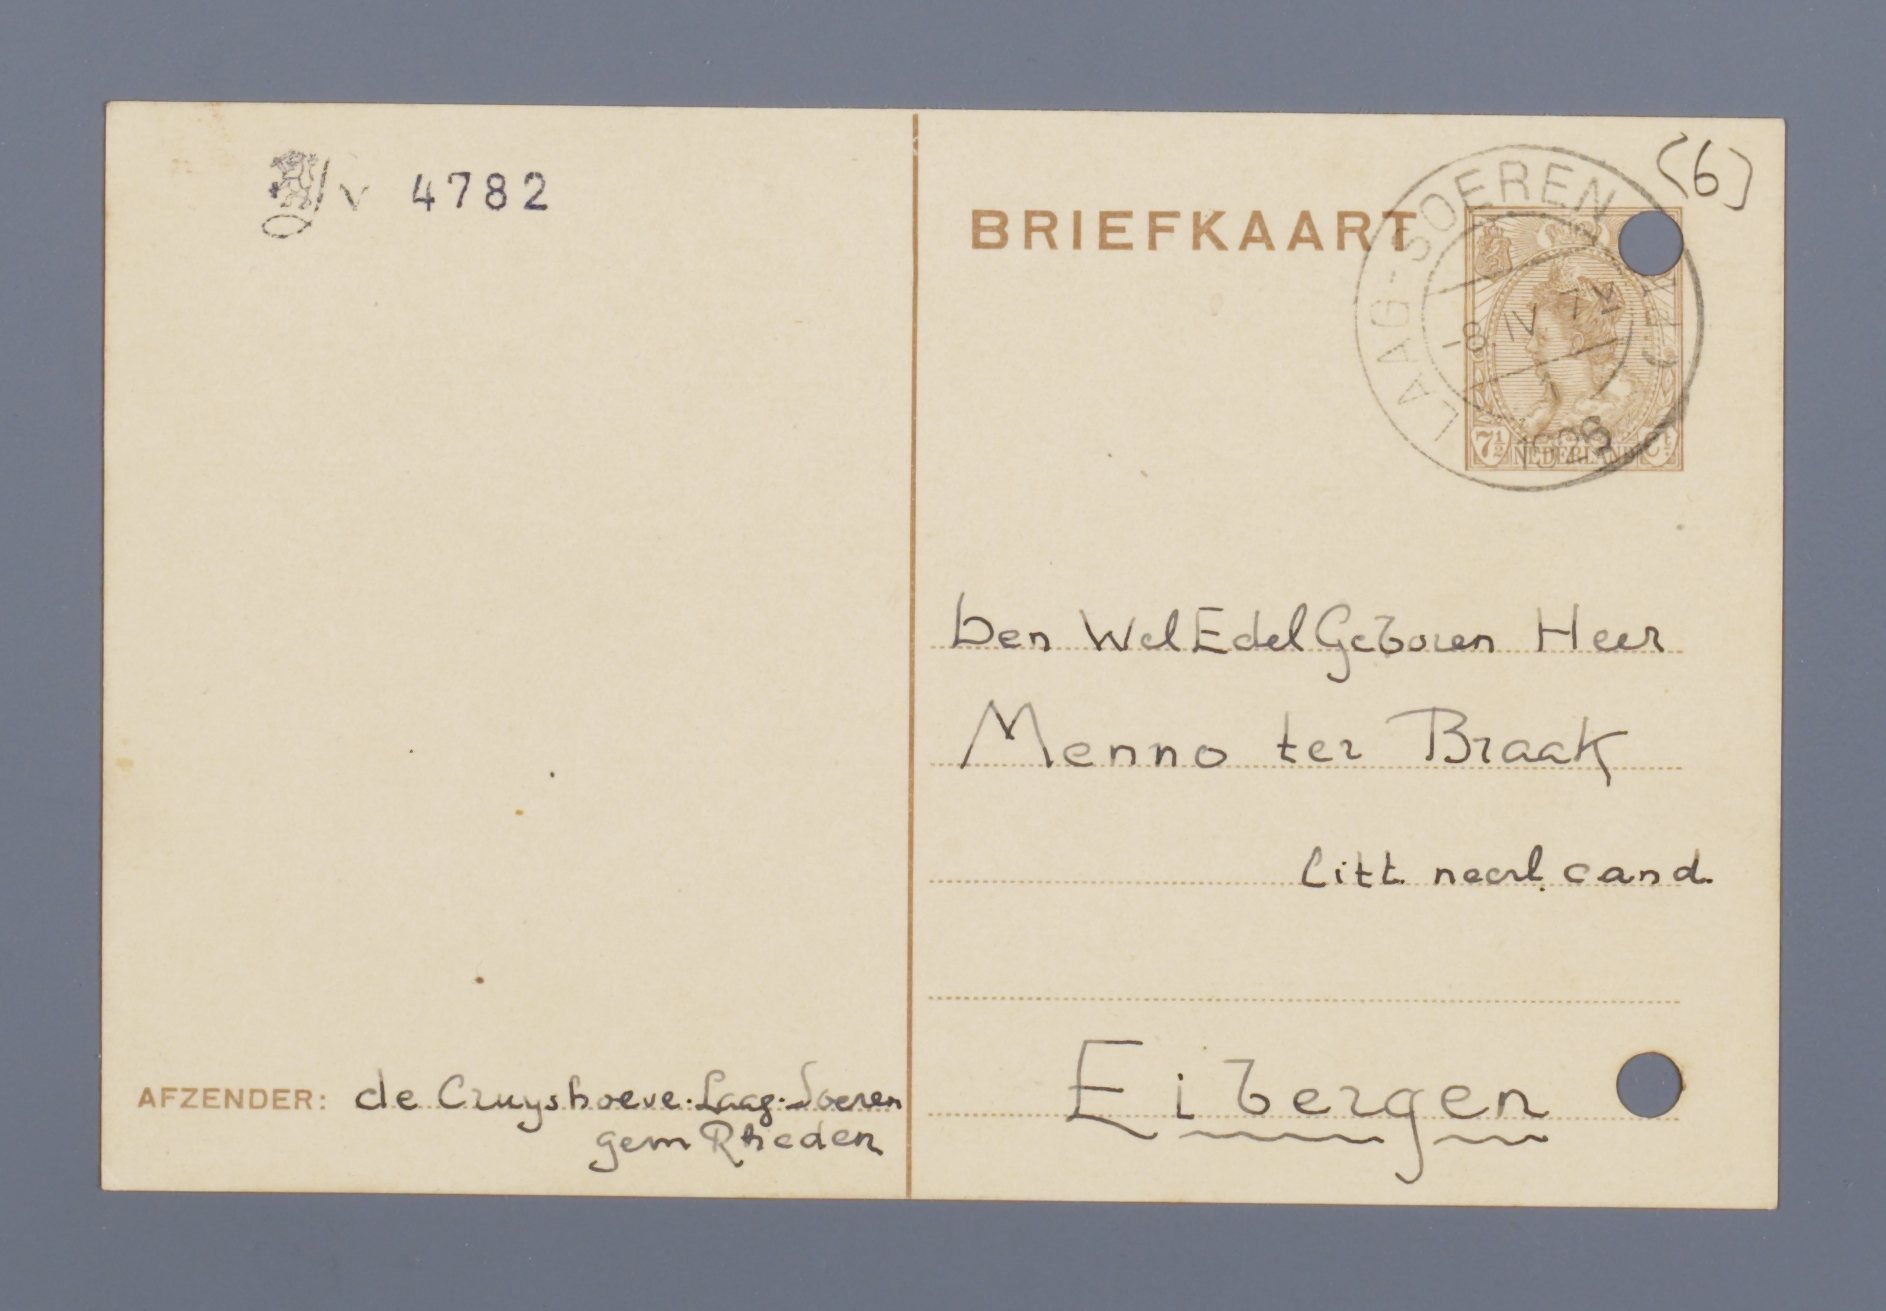 V 4782
(6)
BRIEFKAART
LAAG-SOEREN
-8.IV 7V
1
1926
7½ NEDERLAND Ct
Den WelEdelGeboren Heer
Menno ter Braak
Litt. neerl. cand.
Eibergen
AFZENDER: de Cruyshoeve. Laag-Soeren
gem Rheden